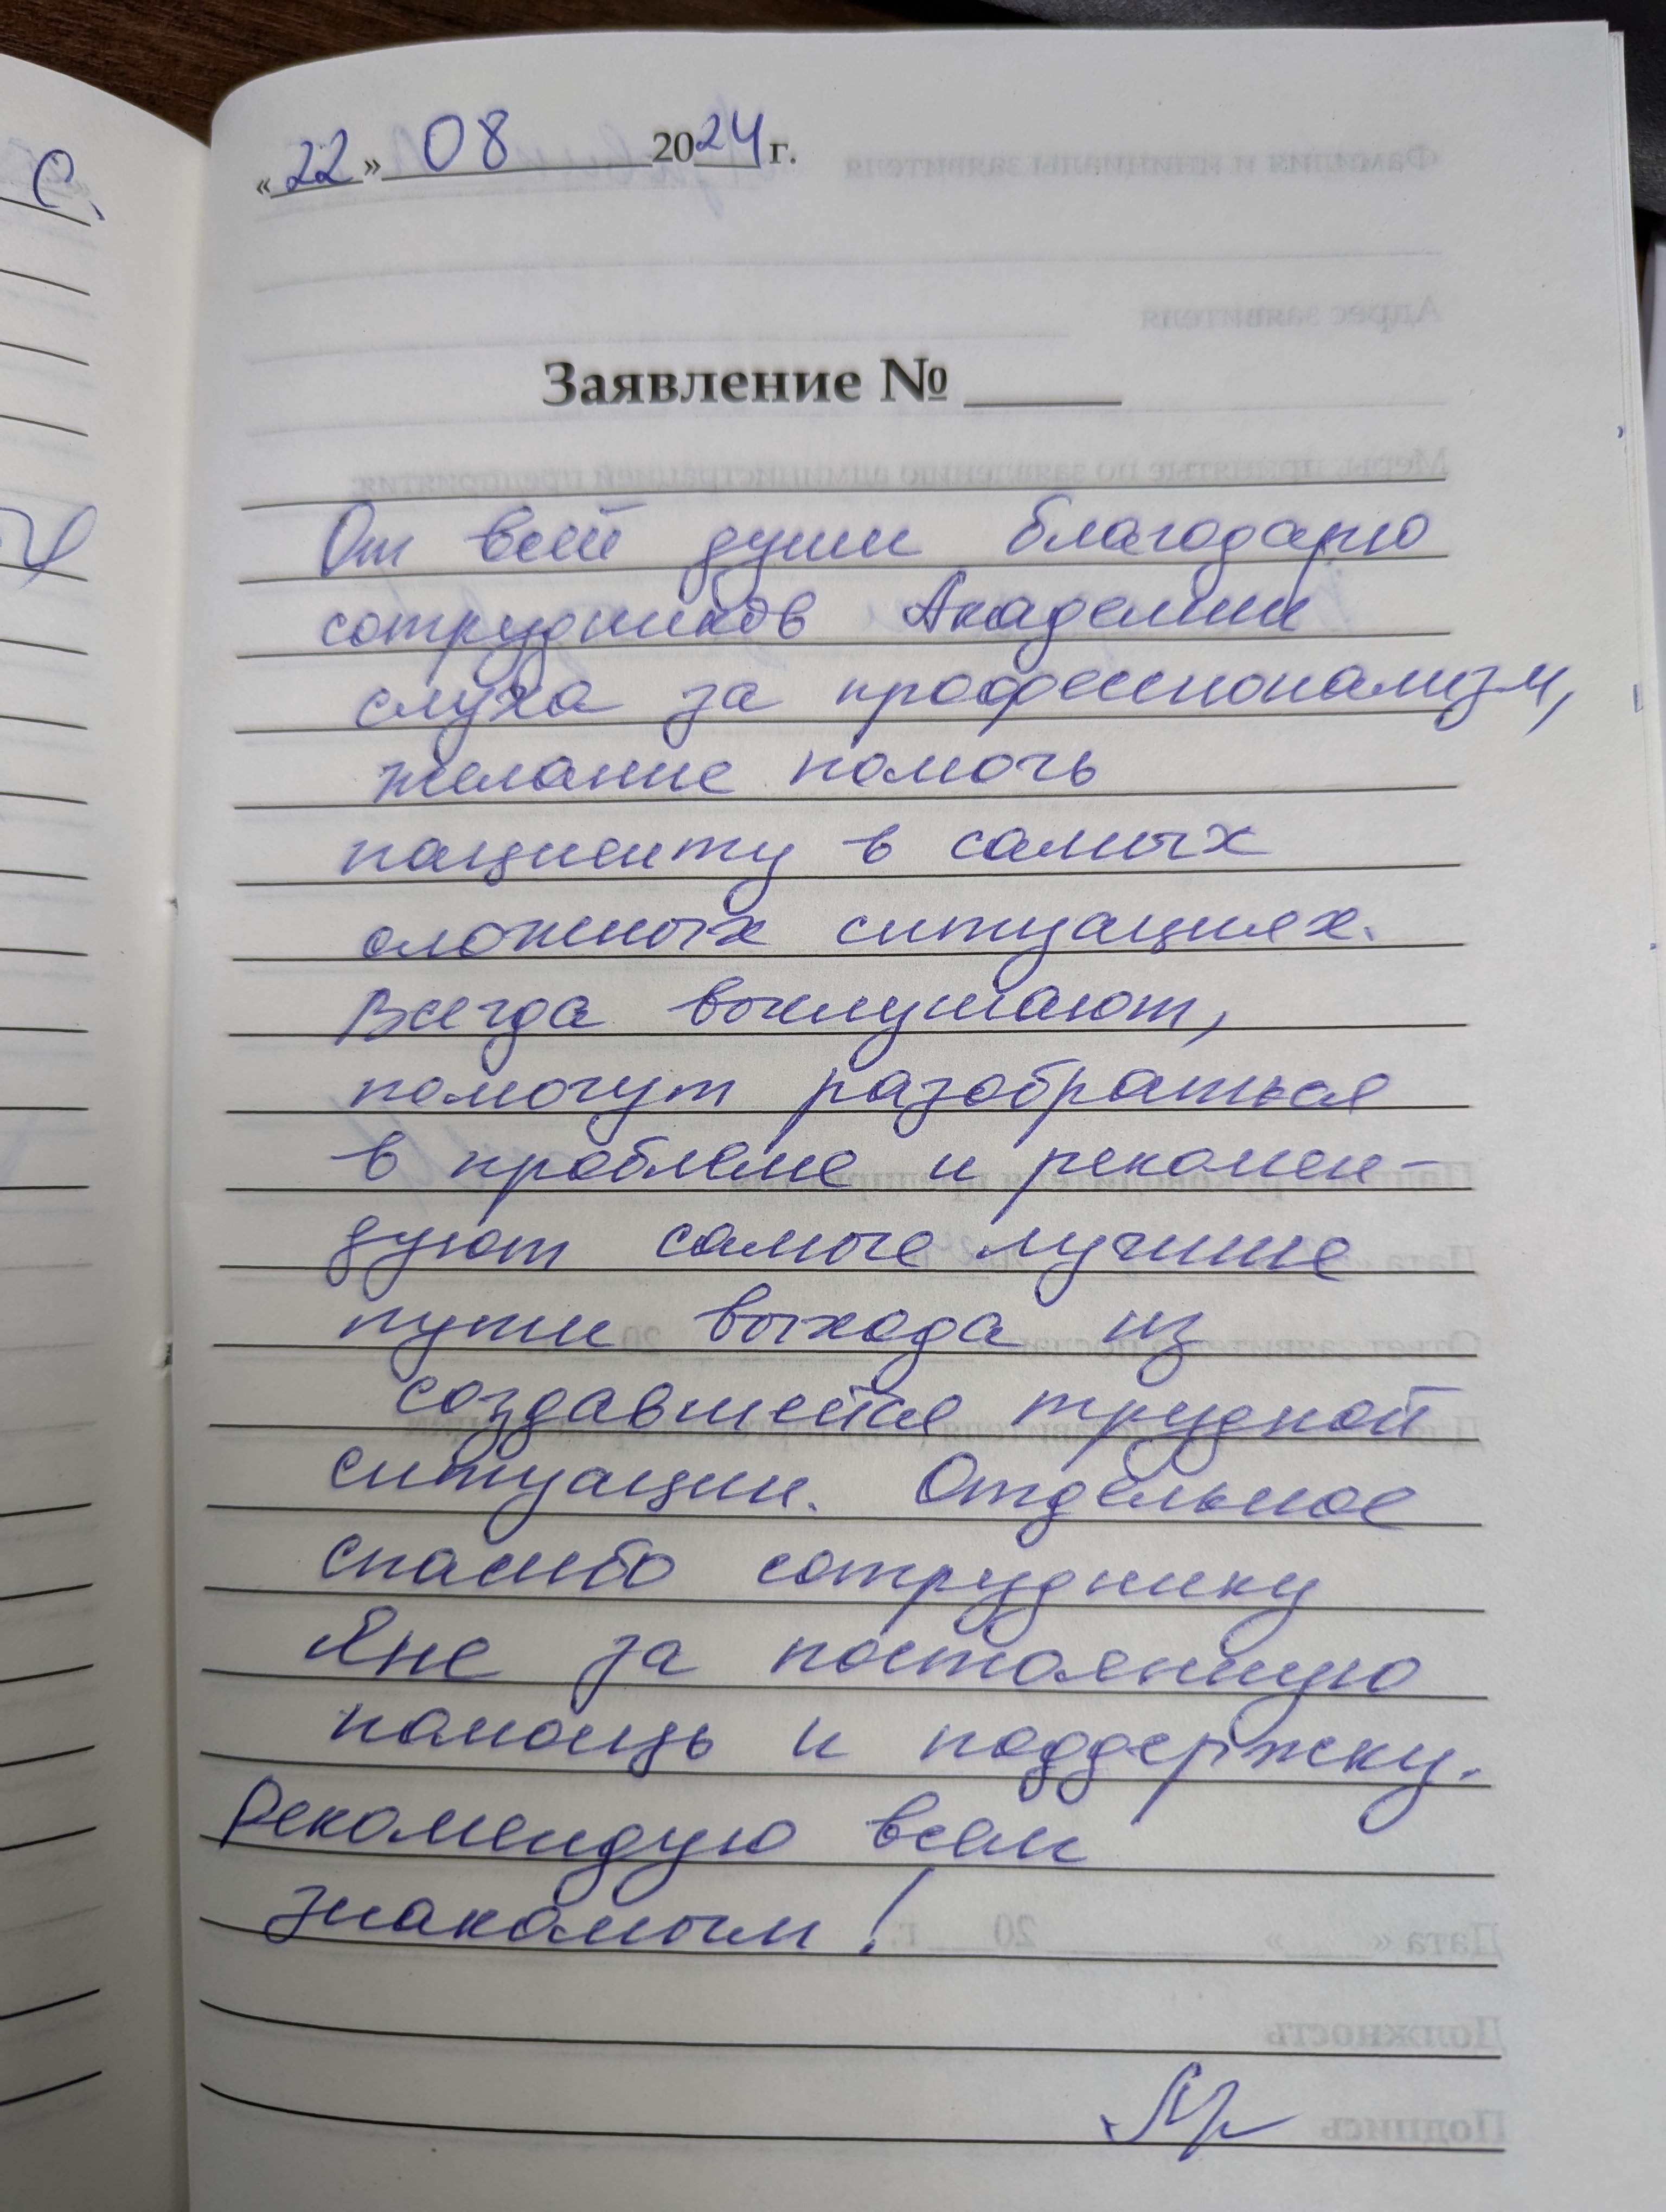 «22» 08 2024 г.
Заявление №
От всей души благодарю
сотрудников Академии
слуха за профессионализм,
желание помочь
пациенту в самых
сложных ситуациях.
Всегда выслушают,
помогут разобраться
в проблеме и рекомен-
дуют самые лучшие
пути выхода из
создавшейся трудной
ситуации. Отдельное
спасибо сотруднику
Яне за постоянную
помощь и поддержку.
Рекомендую всем
знакомым!